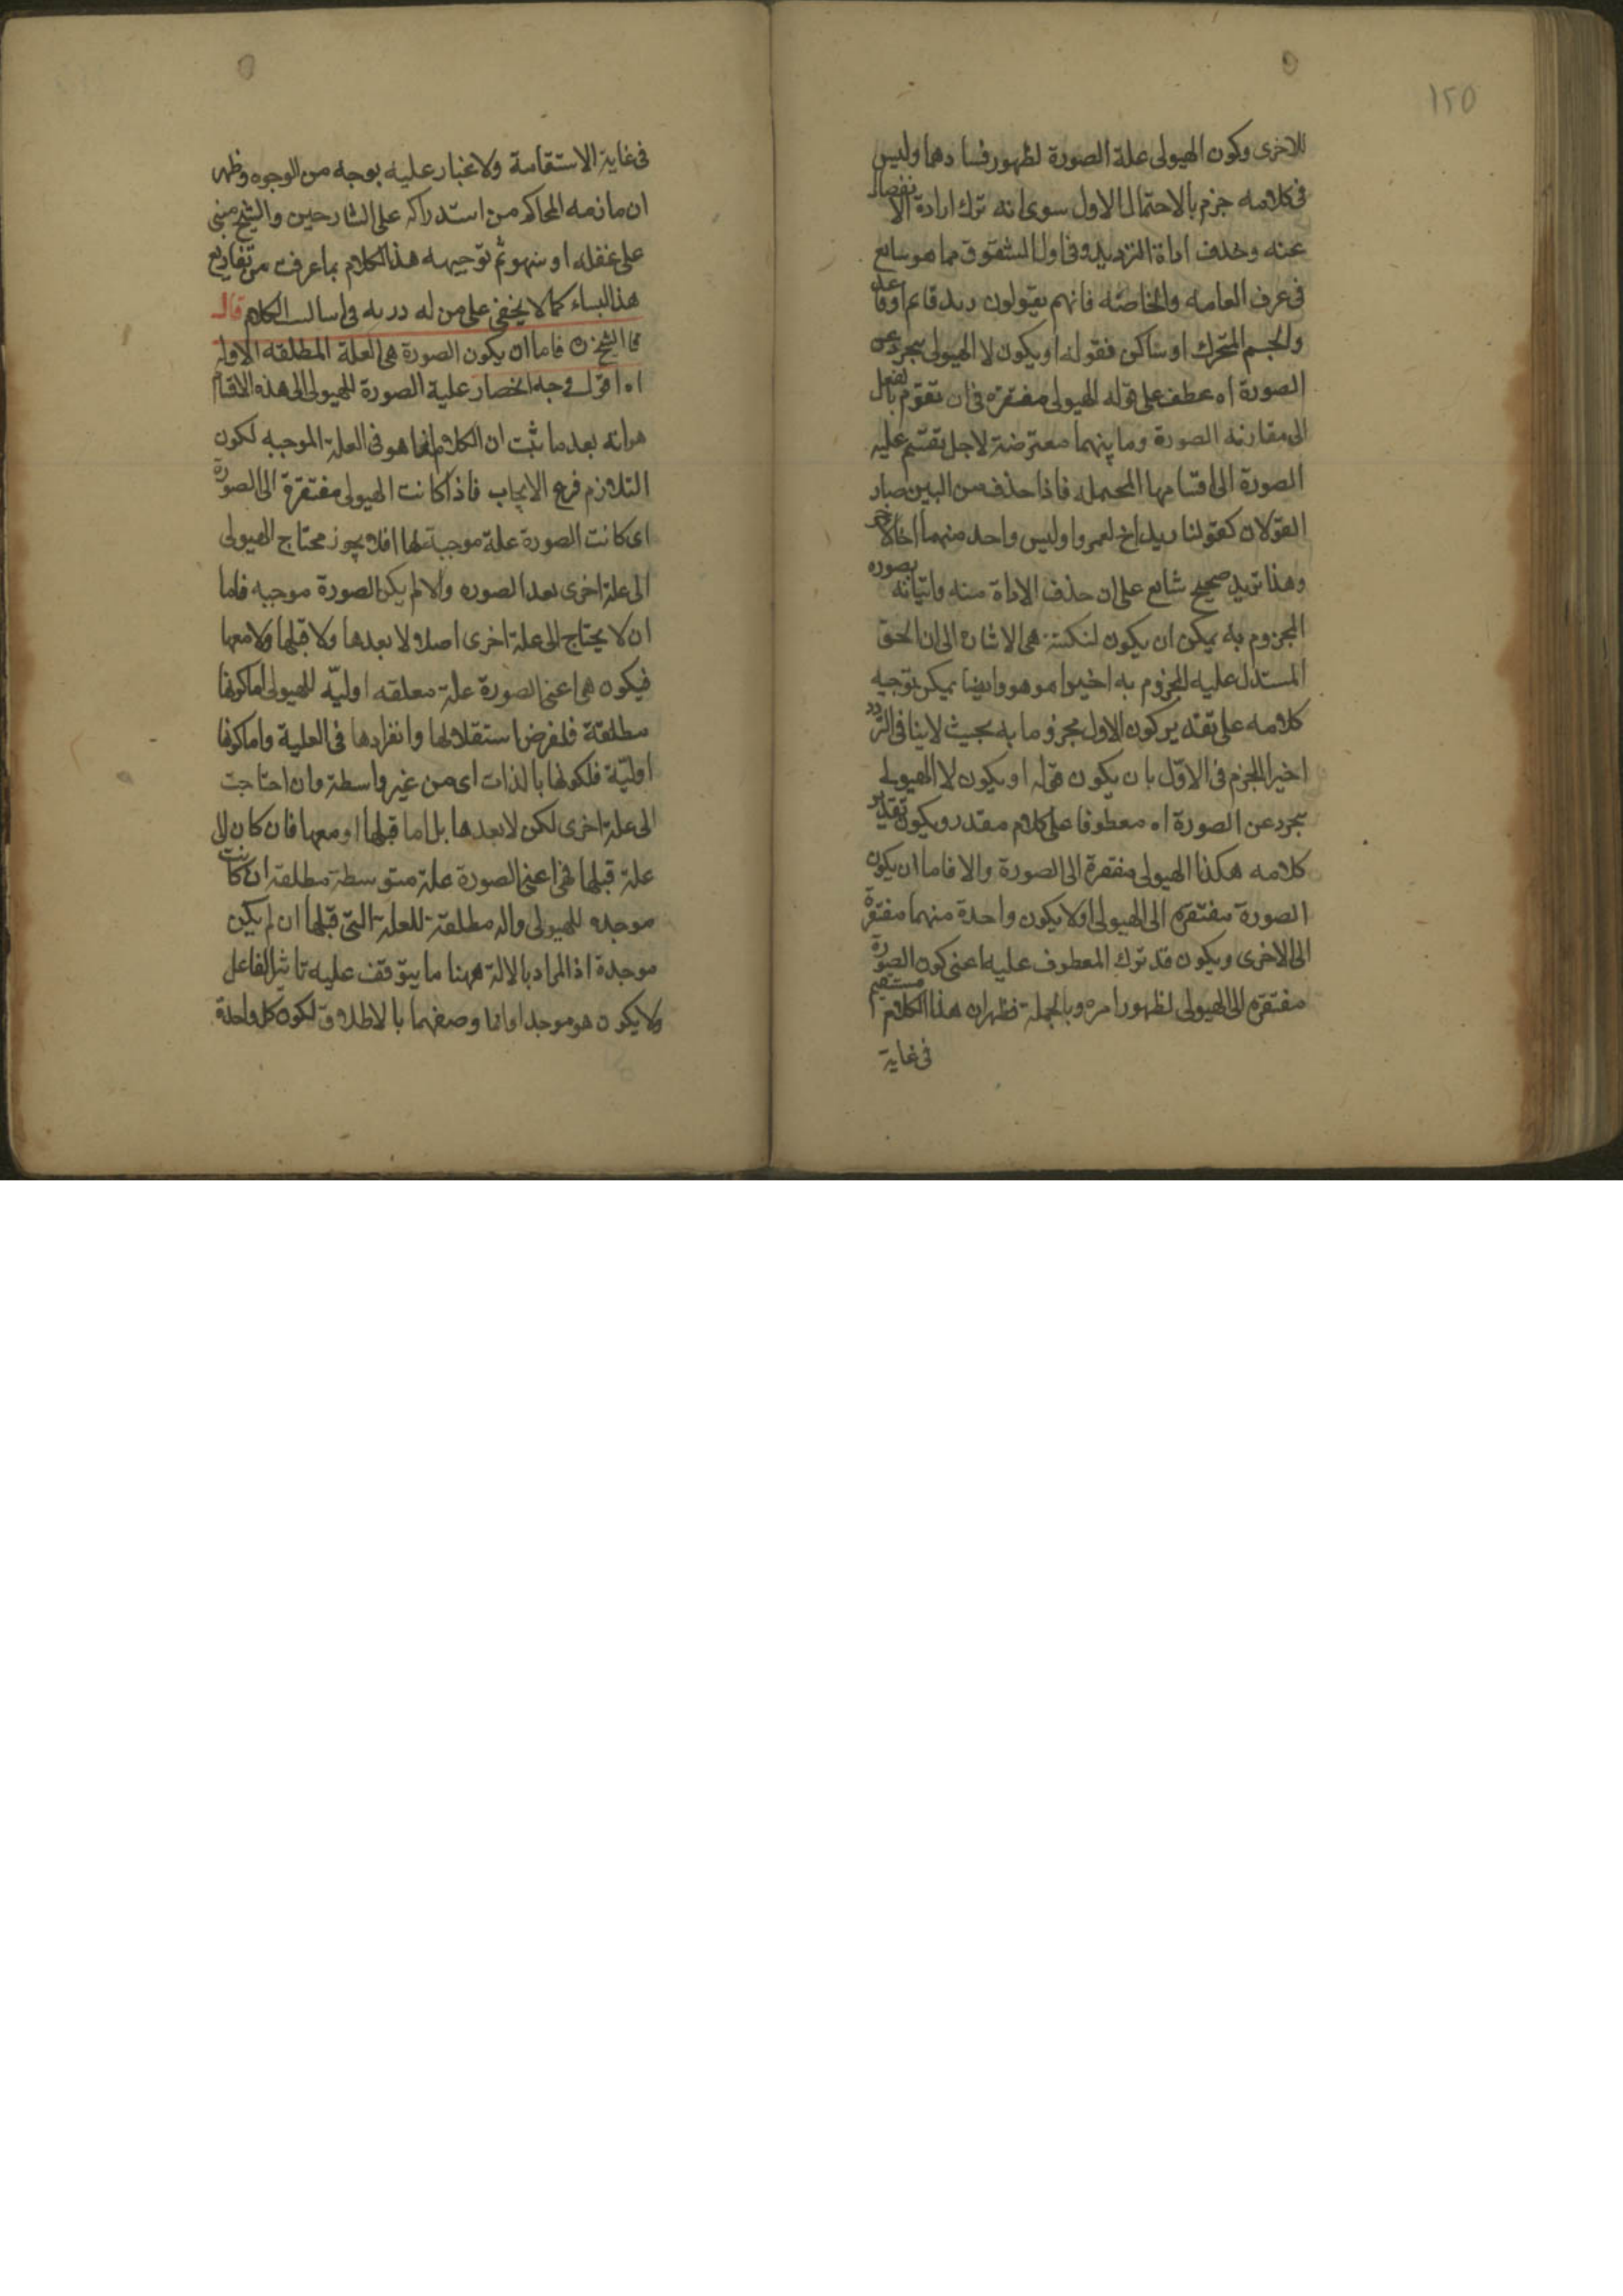 ١٢٥
للاخرى وكون الهيولى علة الصورة لظهور فسادهما وليس
فى كلامه جزم بالاحتمال الاول سوى انه ترك ارادة الانفصال
عنه وحذف اداة الترديد فى اول الشقوق مما هو شايع
فى عرف العامه والخاصّه فانهم يقولون زيد قاعم او قاعد
والجسم المتحرك او ساكن فقوله او يكون لا الهيولى يتجرد عن
الصورة اه عطف على قوله الهيولى مفتقره فى ان تقوّم بالفعل
الى مقارنه الصورة وما بينهما معترضة لاجل تقسيم عليه
الصورة الى اقسامها المحتمله فاذا حذف من البين صار
القولان كقولنا زيد اخ لعمرو او ليس واحد منهما اخا لاخر
وهذا ترديد صحيح شايع على ان حذف الاداة منه واتيانه بصوره
المجزوم به يمكن ان يكون لنكتة هى الاشاره الى ان الحق
المستدل عليه المجزوم به اخيرا هو هو وايضا يمكن توجيه
كلامه على تقدير كون الاول مجزوما به بحيث لا ينافى التردد
اخيرا الجزم فى الاوّل بان يكون قوله او يكون لا الهيولى
تتجرد عن الصورة اه معطوفا على كلام مقدر ويكون تقدير
كلامه هكذا الهيولى مفتقرة الى الصورة والا فاما ان يكون
الصورة مفتقره الى الهيولى او لا يكون واحدة منهما مفتقرة
الى الاخرى ويكون قد ترك المعطوف عليه اعنى كون الصورة
مفتقره الى الهيولى لظهور امره وبالجملة فظهر ان هذا الكلام مستقيم
فى غاية
فى غاية الاستقامة ولا غبار عليه بوجه من الوجوه وظهر
ان ما زعمه المحاكم من استدراكه على الشارحين والشيخ مبنى
على غفله او سهو ثم توجيهه هذا الكلام بما عرفت من تفاريع
هذا البناء كما لا يخفى على من له دربه فى اساليب الكلام قال
الشيخ فاما ان يكون الصورة هى العلة المطلقه الاوليه
اه اقول وجه انحصار علية الصورة للهيولى الى هذه الاقسام
هو انه بعد ما ثبت ان الكلام انما هو فى العلة الموجبه لكون
التلازم فرع الايجاب فاذا كانت الهيولى مفتقرة الى الصورة
اى كانت الصورة علة موجبة لها افلا يجوز محتاج الهيولى
الى علة اخرى بعد الصوره والا لم يكن الصورة موجبه فاما
ان لا يحتاج الى علة اخرى اصلا ولا بعدها ولا قبلها ولا معها
فيكون هى اعنى الصورة علة مطلقه اوليّه للهيولى اما كونها
مطلقة فلفرض استقلالها وانفرادها فى العلية واما كونها
اوليّة فلكونها بالذات اى من غير واسطة وان احتاجت
الى علة اخرى لكن لا بعدها بل اما قبلها او معها فان كان لل
علة قبلها فهى اعنى الصورة علة متوسطة مطلقة ان كانت
موجده للهيولى واله مطلقة للعلة التى قبلها ان لم يكن
موجدة اذ المراد بالالة ههنا ما يتوقف عليه تاثير الفاعل
ولا يكون هو موجدا وانما وصفهما بالاطلاق لكون كل واحدة